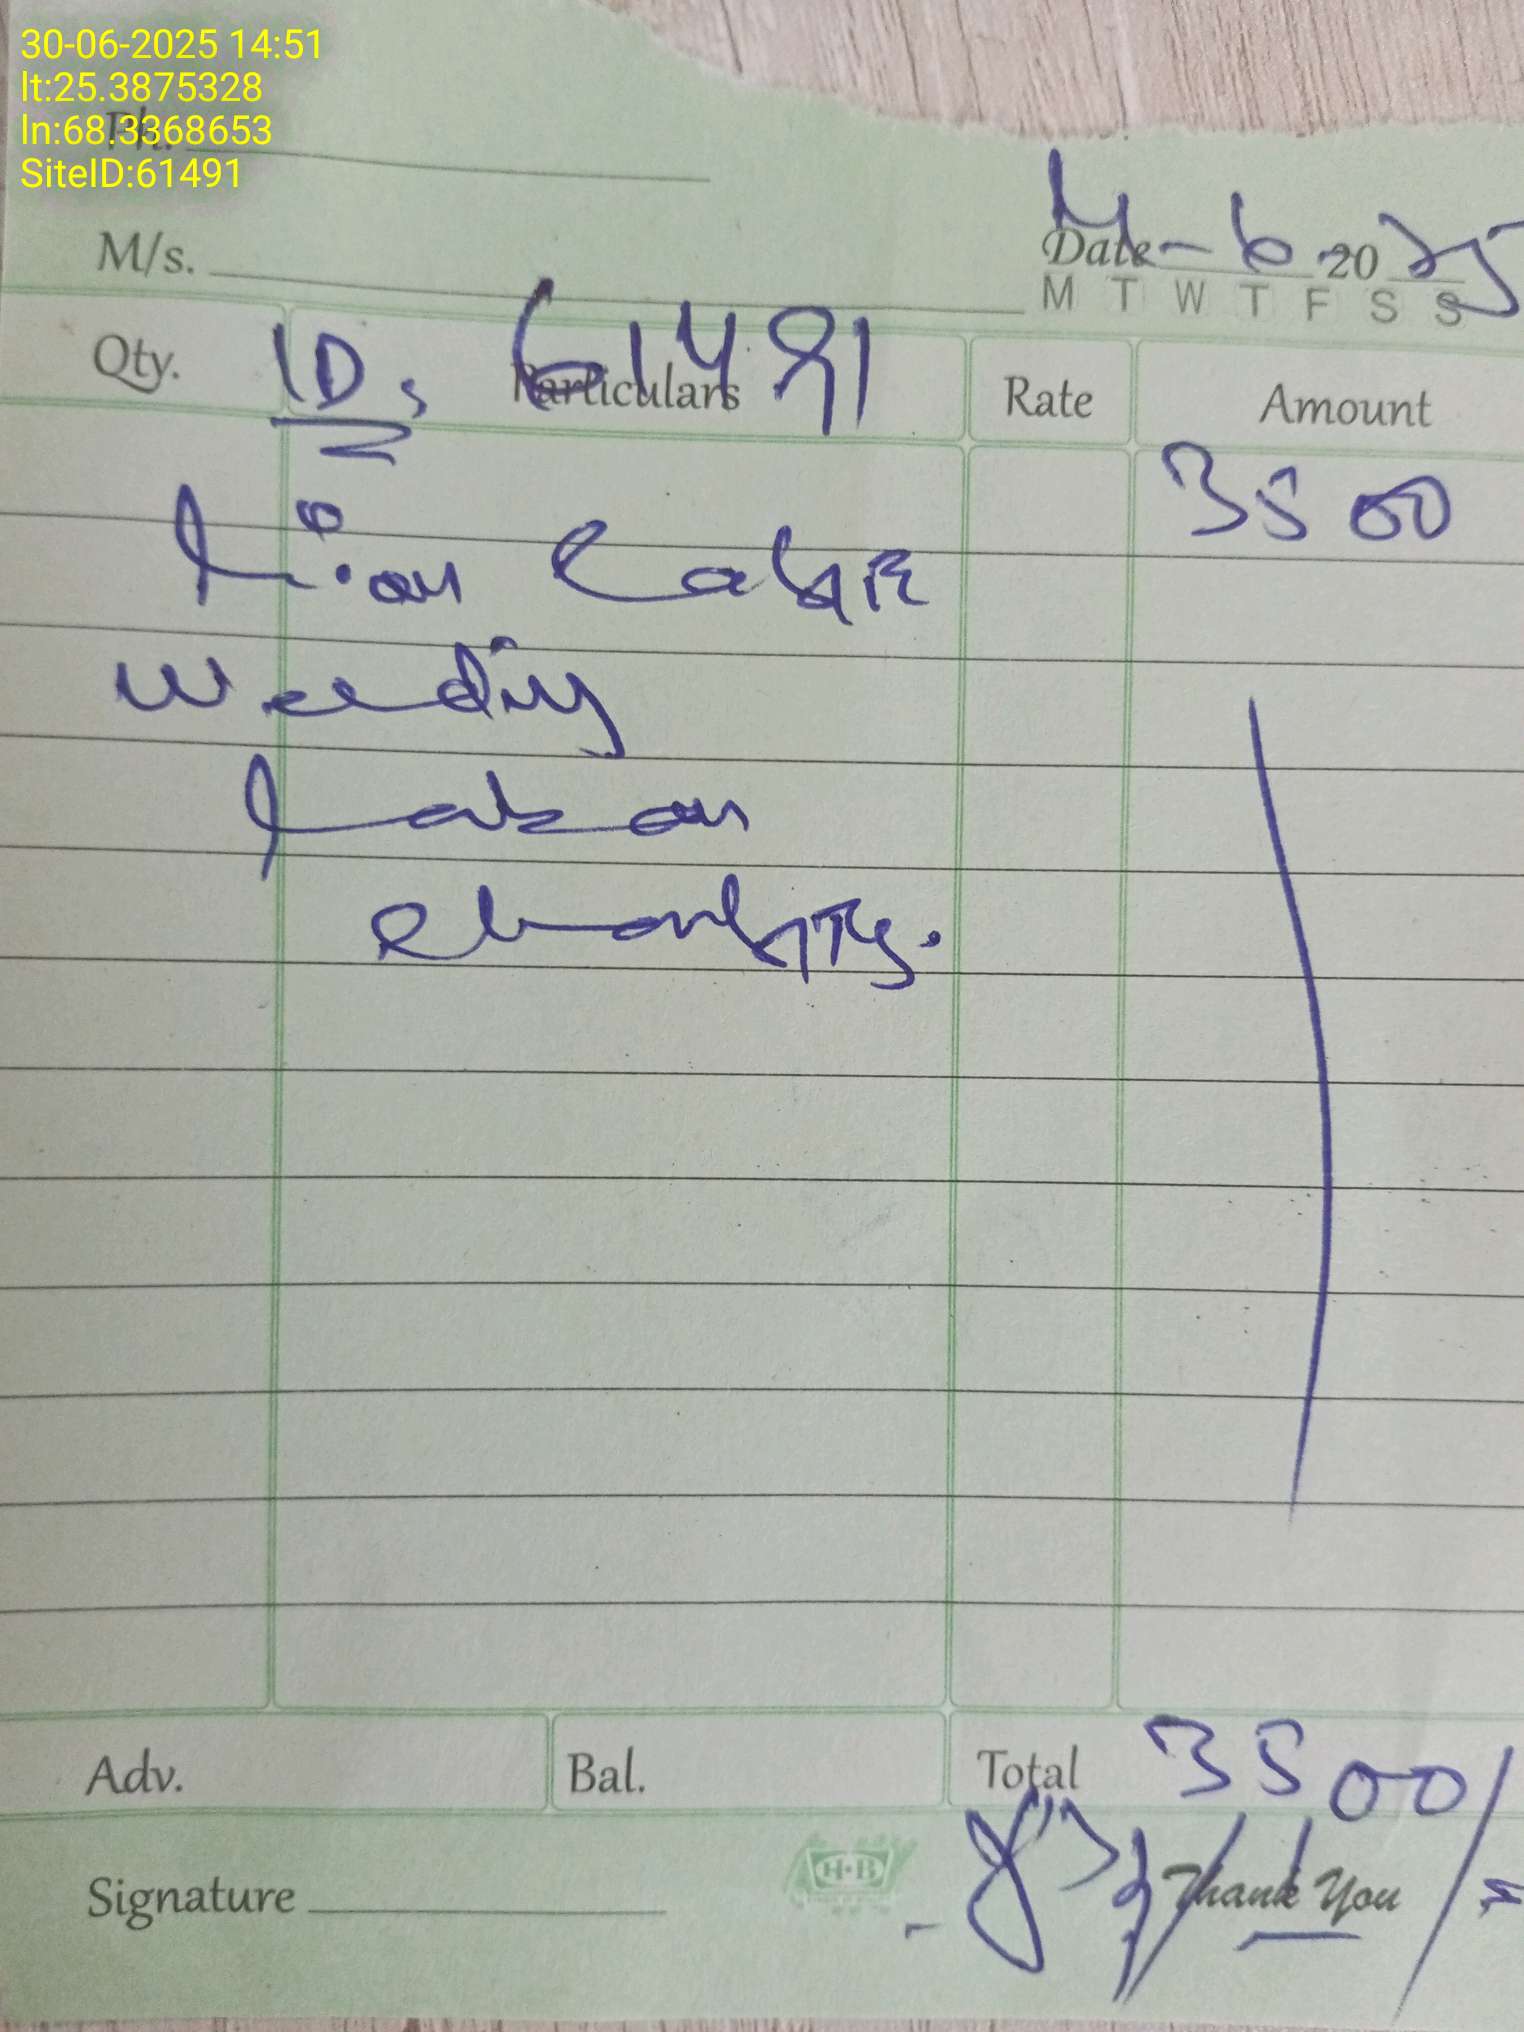 30-06-2025 14:51
lt:25.3875328
Ph.
ln:68.3368653
SiteID:61491
M/s.
Date 6 2025
M T W T F S S
ID: 61491
Qty. Particulars Rate Amount
3500
Weeding
Adv. Bal. Total 3500/=
Signature H·B Thank You